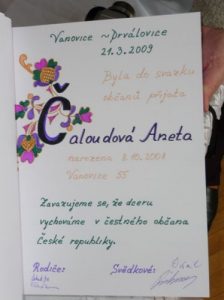 Vanovice ~ Drválovice
21.3.2009
Byla do svazku
občanů přijata
Čaloudová Aneta
narozena 8.10.2008
Vanovice 55
Zavazujeme se, že dceru
vychováme v čestného občana
České republiky.
Rodiče: Svědkové: